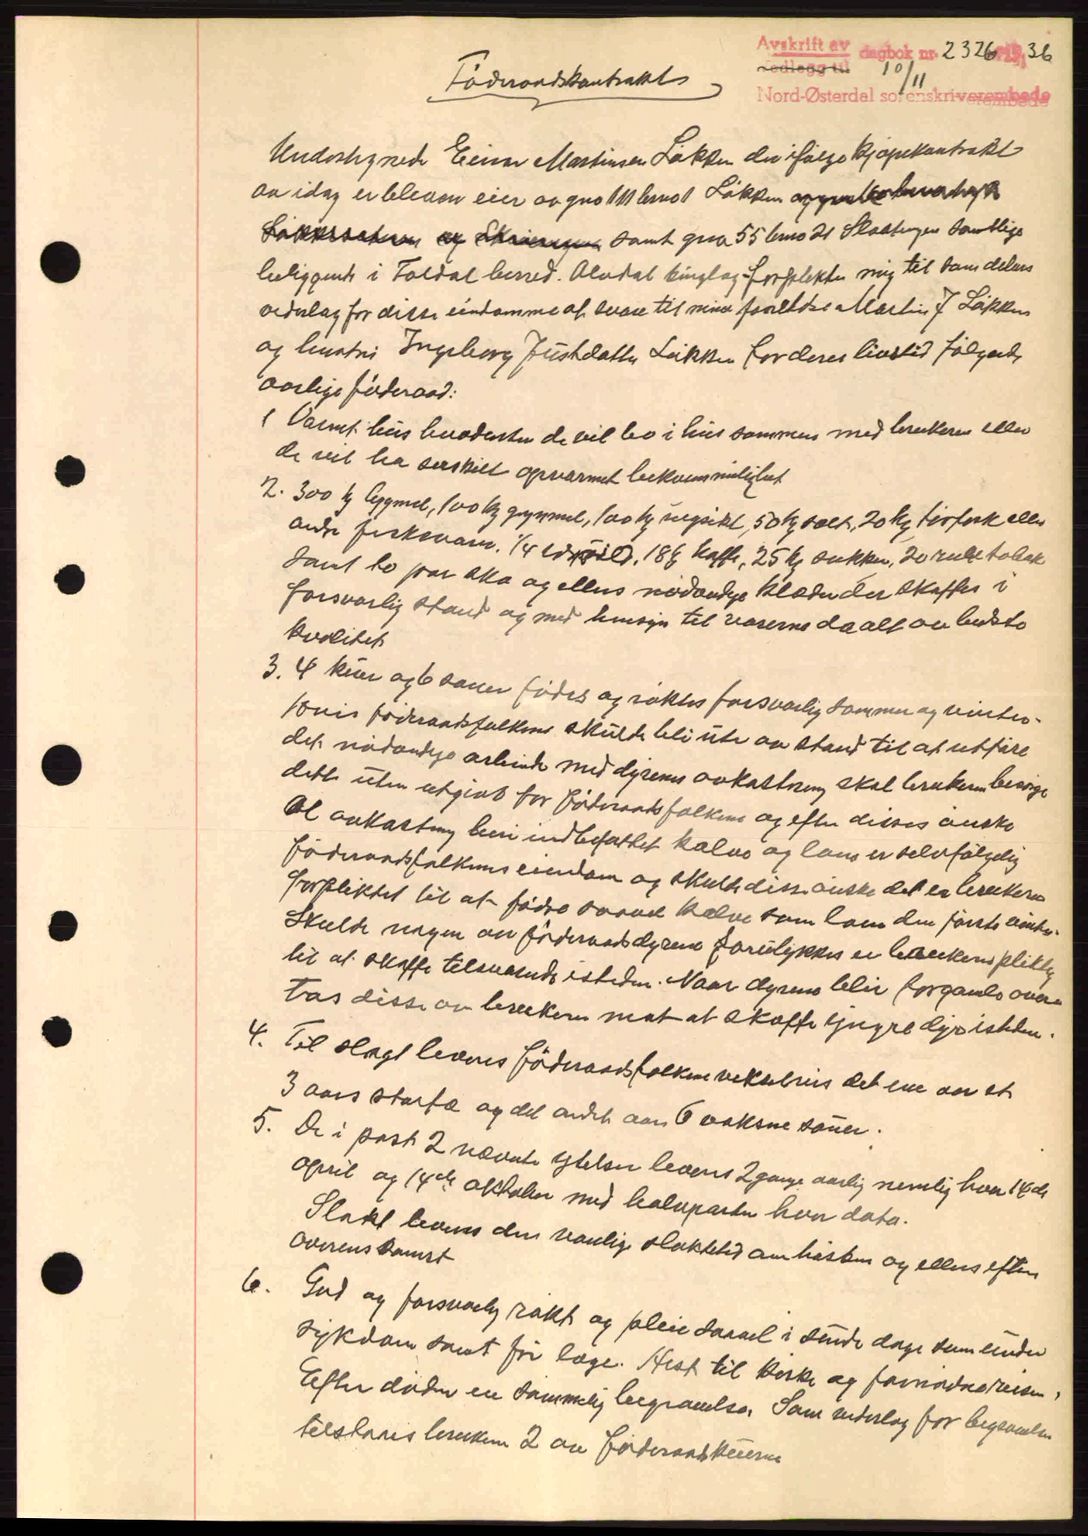 Avskrift av dagbok nr. 2326 1936
Vedlegg til 10/11
Nord-Østerdal sorenskriverembede
Föderaadskontrakt
Undertegnede Einar Martinsen Løkken der ifølge kjøpekontrakt
av idag er bleven eier av gno 111 bruno 1 Løkken
samt gno 55 bruno 21 Slaattengen samtlige
beliggende i Foldal herred. Alvdal tinglag forplikter mig til som delvis
vederlag for disse eiendomme at svare til mine forældre Martin J Løkken
og hustru Ingeborg Løkken for deres livstid følgende
aarlige föderaad:
1 Varmt hus hvadenten de vil bo i hus sammen med brukeren eller
de vil ha særskilt opvarmet bekvemmelighet
2. 300 kg bygmel, 100 kg grynmel, 100 kg rugsikt, 50 kg salt, 20 kg törfisk eller
andre fiskevarer, 1/4 td sild, 18 kg kaffe, 25 kg sukker, 20 rulle tobak
samt to par sko og ellers nödvendige klæder der skaffes i
forsvarlig stand og med hensyn til varerne da alt av bedste
kvalitet.
3. 4 kuer og 6 sauer födes og röktes forsvarlig sommer og vinter.
Hvis föderaadsfolkene skulde bli ute av stand til at utföre
det nödvendige arbeide med dyrenes avkastning skal brukeren besörge
dette uten utgift for föderaadsfolkene og efter disses önske
Al avkastning heri indbefattet kalve og lam er selvfölgelig
föderaadsfolkenes eiendom og skulde disse önske det er brukeren
forpliktet til at födre saavel kalve som lam den förste vinter.
Skulde nogen av föderaadsdyrene forulykkes er brukeren pliktig
til at skaffe tilsvarende isteden. Naar dyrene blir for gamle over-
tas disse av brukeren mot at skaffe yngre dyr isteden.
4. Til slagt leveres föderaadsfolkene vekselvis det ene aar et
3 aars storfæ og det andet aar 6 voksne sauer.
5. De i post 2 nævnte ytelser leveres 2 gange aarlig nemlig hver 14de
april og 14de oktober med halvparten hver dato.
Slakt leveres den vanlige slaktetid om hösten og ellers efter
overenskomst
6. God og forsvarlig rökt og pleie saavel i sunde dage som under
sykdom samt fri læge. Hest til kirke og fornödne reiser.
Efter döden en sömmelig begravelse. Som vederlag for begravelsen
tilstaaes brukeren 2 av föderaadskuerne